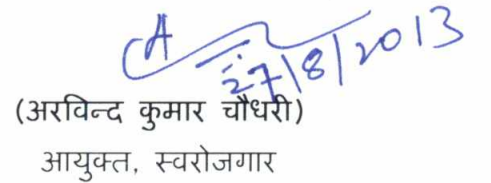 27/8/2013
(अरविन्द कुमार चौधरी)
आयुक्त, स्वरोजगार